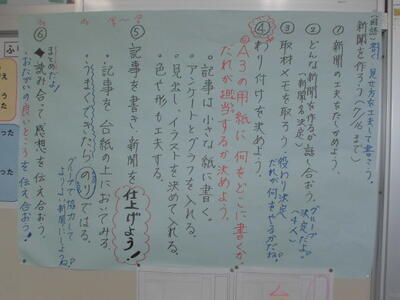 （国語）書く 見せ方を工夫して書こう。
新聞を作ろう（7/16まで）
① 新聞の工夫をたしかめよう。
② どんな新聞を作るか話し合おう。グループ（4人）
（新聞名決定）
③ 取材メモを取ろう。役わり決定
だれが何をやるかだね。
④ わり付けを決めよう。
◎A3の用紙に何をどこに書くか、
だれが担当するか決めよう。
・記事は小さな紙に書く。
・アンケートとグラフを入れる。
・見出し、イラストを決めて入れる。
・色や形も工夫する。
⑤ 記事を書き、新聞を仕上げよう！
・記事を台紙の上においてみる。
・うまくできたら、のりではる。
グループで協力して
よりよい新聞にしようね。
⑥ ◆読み合って感想を伝え合おう。
まとめだよ！
・おたがいの良いところを伝え合おう！